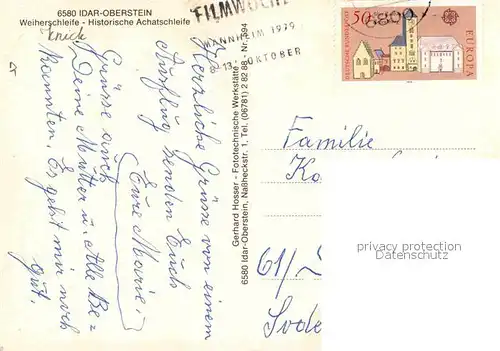 6580 IDAR-OBERSTEIN
Weiherschleife - Historische Achatschleife
Knick
FILMWOCHE
MANNHEIM 1979
8.-13. OKTOBER
6800
50
DEUTSCHE BUNDESPOST
EUROPA
Herzliche Grüsse von einem
Ausflug senden Euch
Eure Marie.
Grüsse auch
Deine Mutter u. Alle Be-
kannten. Es geht mir noch
gut.
Gerhard Hosser - Fototechnische Werkstätte
6580 Idar-Oberstein, Naßheckstr. 1, Tel. (06781) 2 82 88 - Nr. 594
Familie
Ko
61/
privacy protection
AnsichtskartenVersand.com